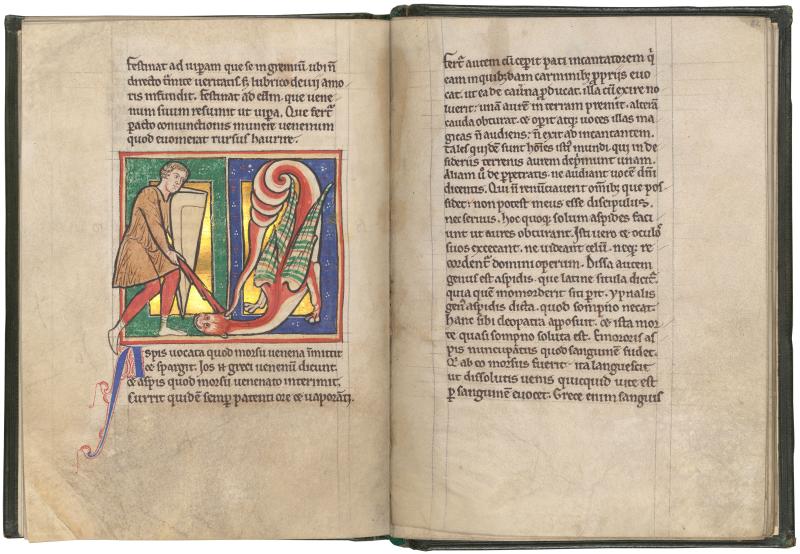 festinat ad uipam que se in gremiū ubi n̄
directo tinice ueritatis. s; lubrico deuii amo
ris infundit. festinat ad eam. que uene
num suum resumit ut uipa. Que fert᷑
pacto coniunctionis munere uenenum
quod euomerat rursus haurire.
Aspis uocata quod morsu uenena īmittit
& spargit. Ios n̄ greci uenenū dicunt.
& aspis quod morsu uenenato interimit.
Currit quidē semp patenti ore & uaporāti.
62
fert᷑ autem cū cepit pati incantatorem q̇
eam inquibꝰdam carminibꝰ pprijs euo
cat. ut ea de cauerna pducat. illa cū exire no
luerit. unā aurē in terram premit. alterā
cauda obturat. & opit. atq; uoces illas ma
gicas n̄ audiens. n̄ exit ad incantantem.
Tales quidē sunt hoīes isti mundi. qui in de
sideriis terrenis aurem depīmunt unam.
Aliam ů de ppetratis. ne audiant uocem dn̄i
dicentis. Qui n̄ renūciauerit om̄ibꝰ que pos
sidet. non potest meus esse discipulus.
nec seruus. hoc quoq; solum aspides faci
unt ut aures obturant. Isti uero & oculos
suos excecant. ne uideant celū. neq; re
cordent᷑ domini operum. Dissa autem
genus est aspidis. que latine situla dicit᷑.
quia quē momorderit siti pit. ypnalis
genꝰ aspidis dicta. quod sompno necat.
hanc sibi cleopatra apposuit. & ita mor
te quasi sompno soluta est. Emorois as
pis nuncupatus quod sanguinē sudet.
Qͥ ab eo morsus fuerit. ita languescit
ut dissolutis uenis quicquid uite est
p sanguinem euocet. Grece enim sanguis